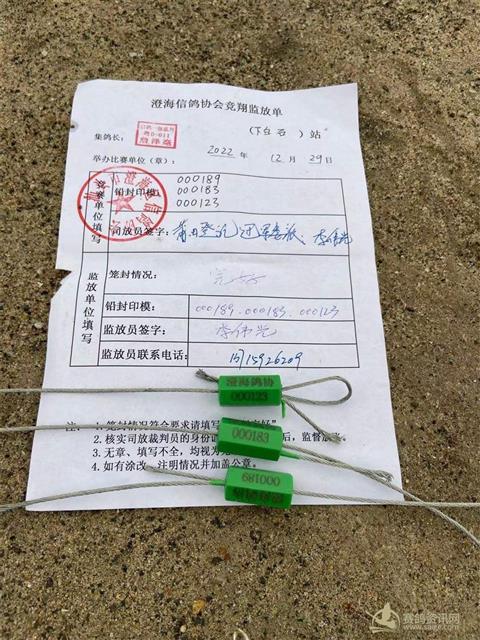 澄海信鸽协会竞翔监放单
(下白石)站
集鸽长:
举办比赛单位(章): 2022 年 12 月 29 日
竞赛单位填写
铅封印模:
000189
000183
000123
司放员签字:
监放单位填写
笼封情况: 完好
铅封印模: 000189.000183.000123
监放员签字: 李伟光
监放员联系电话:
注: 1. 笼封情况符合要求请填写
2. 核实司放裁判员的身份 后,监督放
3. 无章、填写不全,均视为
4. 如有涂改,注明情况并加盖公章。
澄海鸽协
000123
000183
000189
赛鸽资讯网
www.saige.com